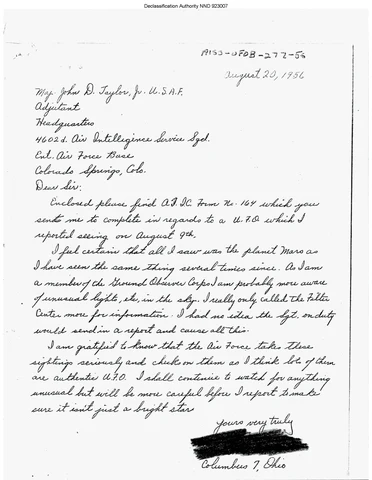 Declassification Authority NND 923007
August 20, 1956
Maj. John D. Taylor, Jr. U.S.A.F.
Adjutant
Headquarters
4602d. Air Intelligence Service Sqd.
Ent. Air Force Base
Colorado Springs, Colo.
Dear Sir:
Enclosed please find A.T.I.C. Form No. 164 which you
sent me to complete in regards to a U.F.O which I
reported seeing on August 9th.
I feel certain that all I saw was the planet Mars as
I have seen the same thing several times since. As I am
a member of the Ground Observer Corps I am probably more aware
of unusual lights, etc, in the sky. I really only called the Filter
Center more for information. I had no idea the Sgt. on duty
would send in a report and cause all this.
I am gratified to know that the Air Force takes these
sightings seriously and check on them as I think lots of them
are authentic U.F.O. I shall continue to watch for anything
unusual but will be more careful before I report to make
sure it isn't just a bright star
Yours very truly
Columbus 7, Ohio